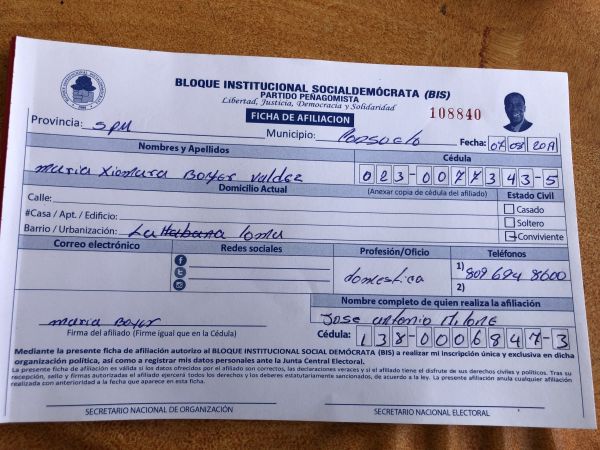 BLOQUE INSTITUCIONAL SOCIALDEMÓCRATA (BIS)
PARTIDO PEÑAGOMISTA
Libertad, Justicia, Democracia y Solidaridad
108840
FICHA DE AFILIACION
Provincia: SPM Municipio: Consuelo Fecha:
Nombres y Apellidos Cédula
Maria Xiomara Boyer Valdez 023-0077343-5
Domicilio Actual (Anexar copia de cédula del afiliado) Estado Civil
Calle: Casado
#Casa / Apt. / Edificio: Soltero
Barrio / Urbanización: La Habana loma Conviviente
Correo electrónico Redes sociales Profesión/Oficio Teléfonos
domestica 1) 809 694 8600
2)
Nombre completo de quien realiza la afiliación
Maria Boyer Jose Antonio
Firma del afiliado (Firme igual que en la Cédula) Cédula: 138-0006847-3
Mediante la presente ficha de afiliación autorizo al BLOQUE INSTITUCIONAL SOCIAL DEMÓCRATA (BIS) a realizar mi inscripción única y exclusiva en dicha
organización política, así como a registrar mis datos personales ante la Junta Central Electoral.
La presente ficha de afiliación es válida si los datos ofrecidos por el afiliado son correctos, las declaraciones veraces y si el afiliado tiene el disfrute de sus derechos civiles y políticos. Tras su
recepción, sello y firmas autorizadas el afiliado ejercerá todos los derechos y los deberes estatutariamente sancionados, de acuerdo a la ley. La presente afiliación anula cualquier afiliación
realizada con anterioridad a la fecha que aparece en esta ficha.
SECRETARIO NACIONAL DE ORGANIZACIÓN SECRETARIO NACIONAL ELECTORAL